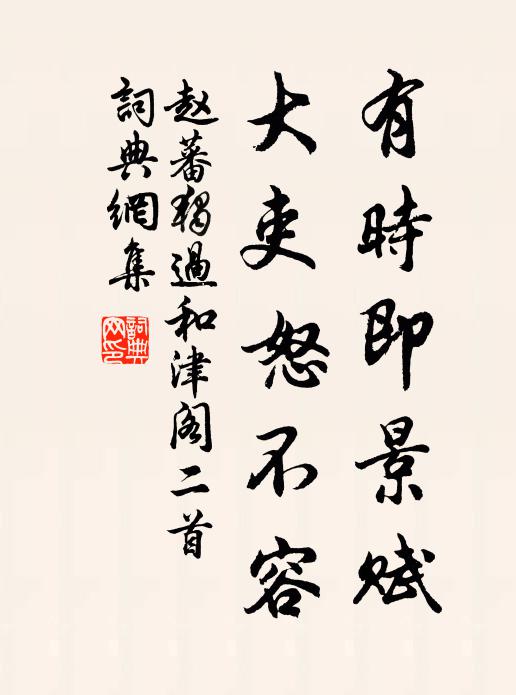 有時即景賦
大吏怒不容
赵蕃獨過和津阁二首
詞典網集
詞典网印